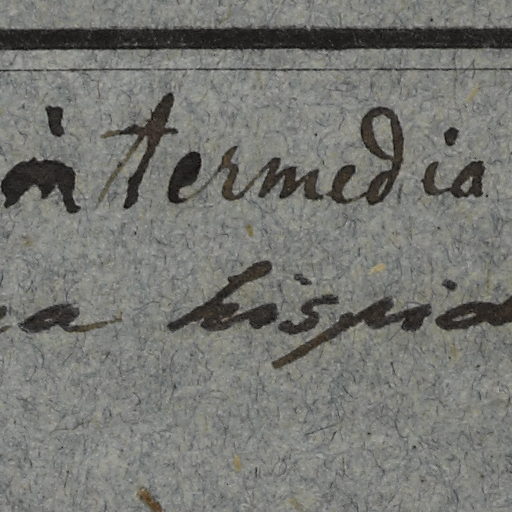 intermedia
a hispid